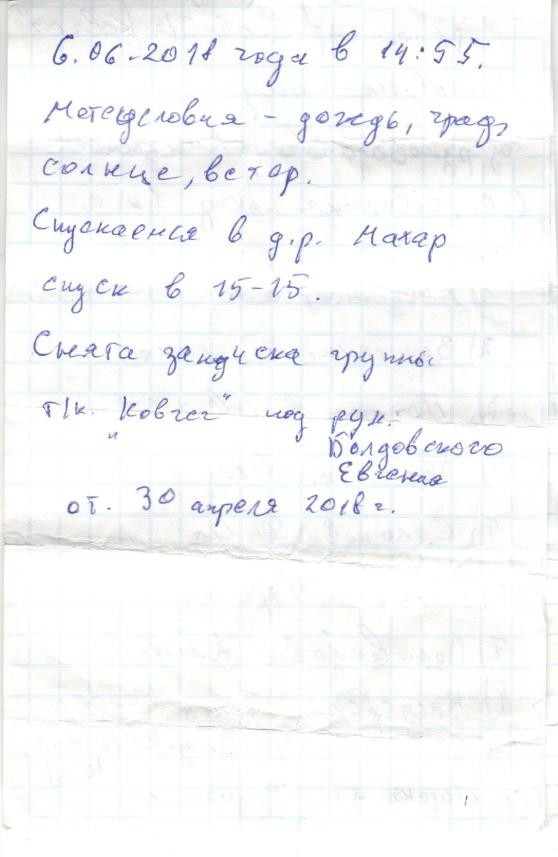 6.06.2018 года в 14:55.
Метеоусловия - дождь, град,
солнце, ветер.
Спускаемся в д.р. Махар
спуск в 15-15.
Снята записка группы
т/к. "Ковчег" под рук.
Болдовского
Евгения
от. 30 апреля 2018 г.